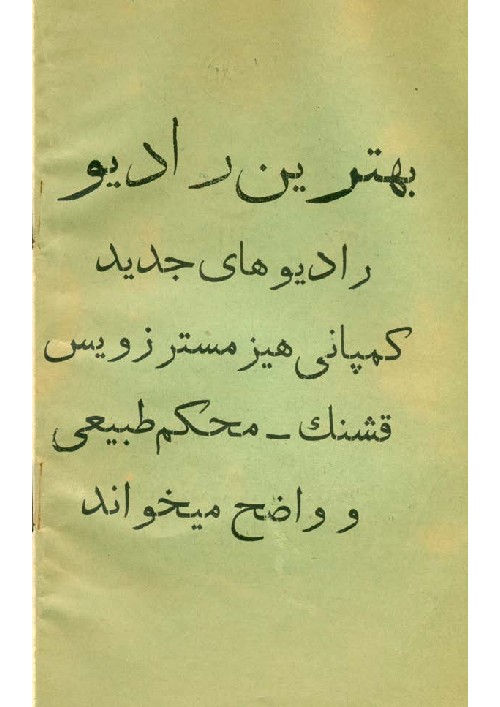 بهترین رادیو
رادیو های جدید
کمپانی هیز مسترز ویس
قشنك ـ محکم طبیعی
و واضح میخواند